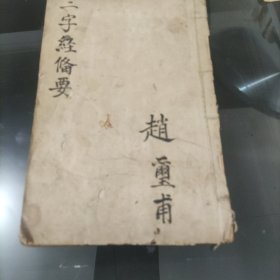 三字經備要
趙璽甫